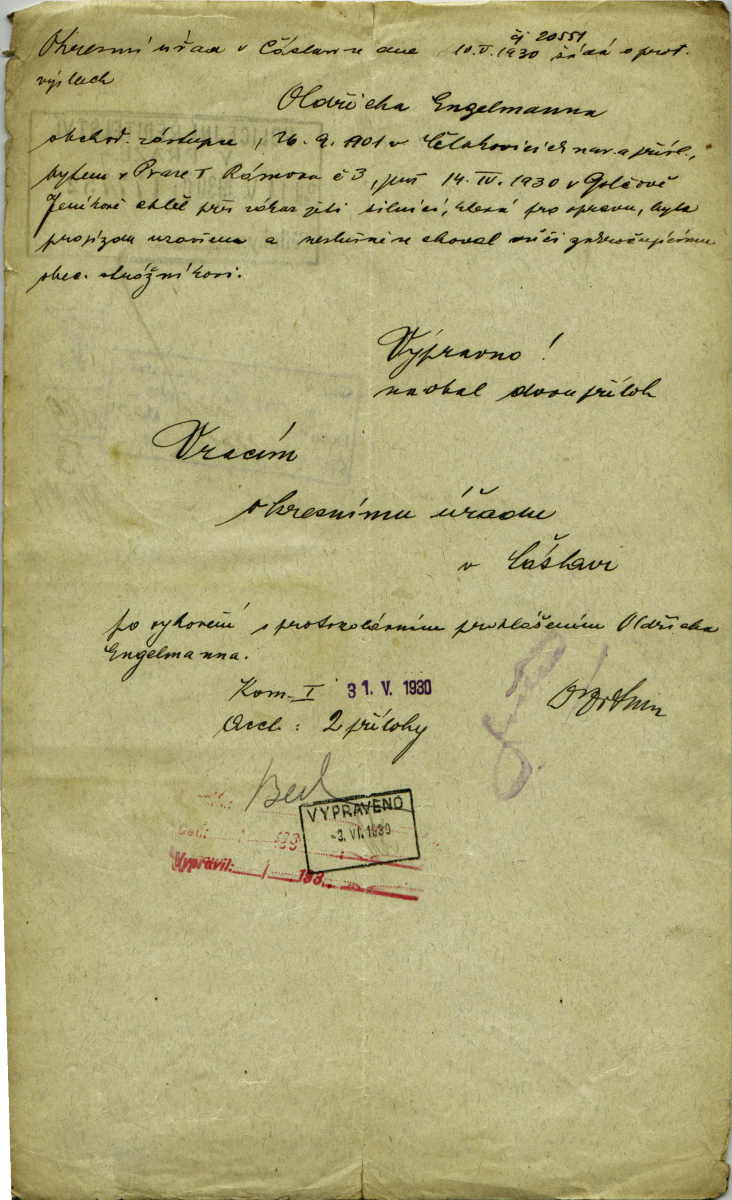 čj 20551
Okresní úřad v Čáslavi ze dne 10.V.1930 žádá o prot.
výslech
Oldřicha Engelmanna
obchod. zástupce, 26.9.1901 v Čelákovicích nar. a přísl.,
bytem v Praze I Rámova č 3, jenž 14.IV.1930 v Golčově
Jeníkově chtěl přes zákaz jeti silnicí, která pro opravu, byla
projezdu uzavřena a neslušně se choval vůči zakročujícímu
obec. strážníkovi.
Výpravno!
na obal dvou příloh
Vracím
okresnímu úřadu
v Čáslavi
po vyhovění s protokolárním prohlášením Oldřicha
Engelmanna.
Kom. I 31. V. 1930
2 přílohy
VYPRAVENO
-3. VI. 1930
193
Vypravil: / 193